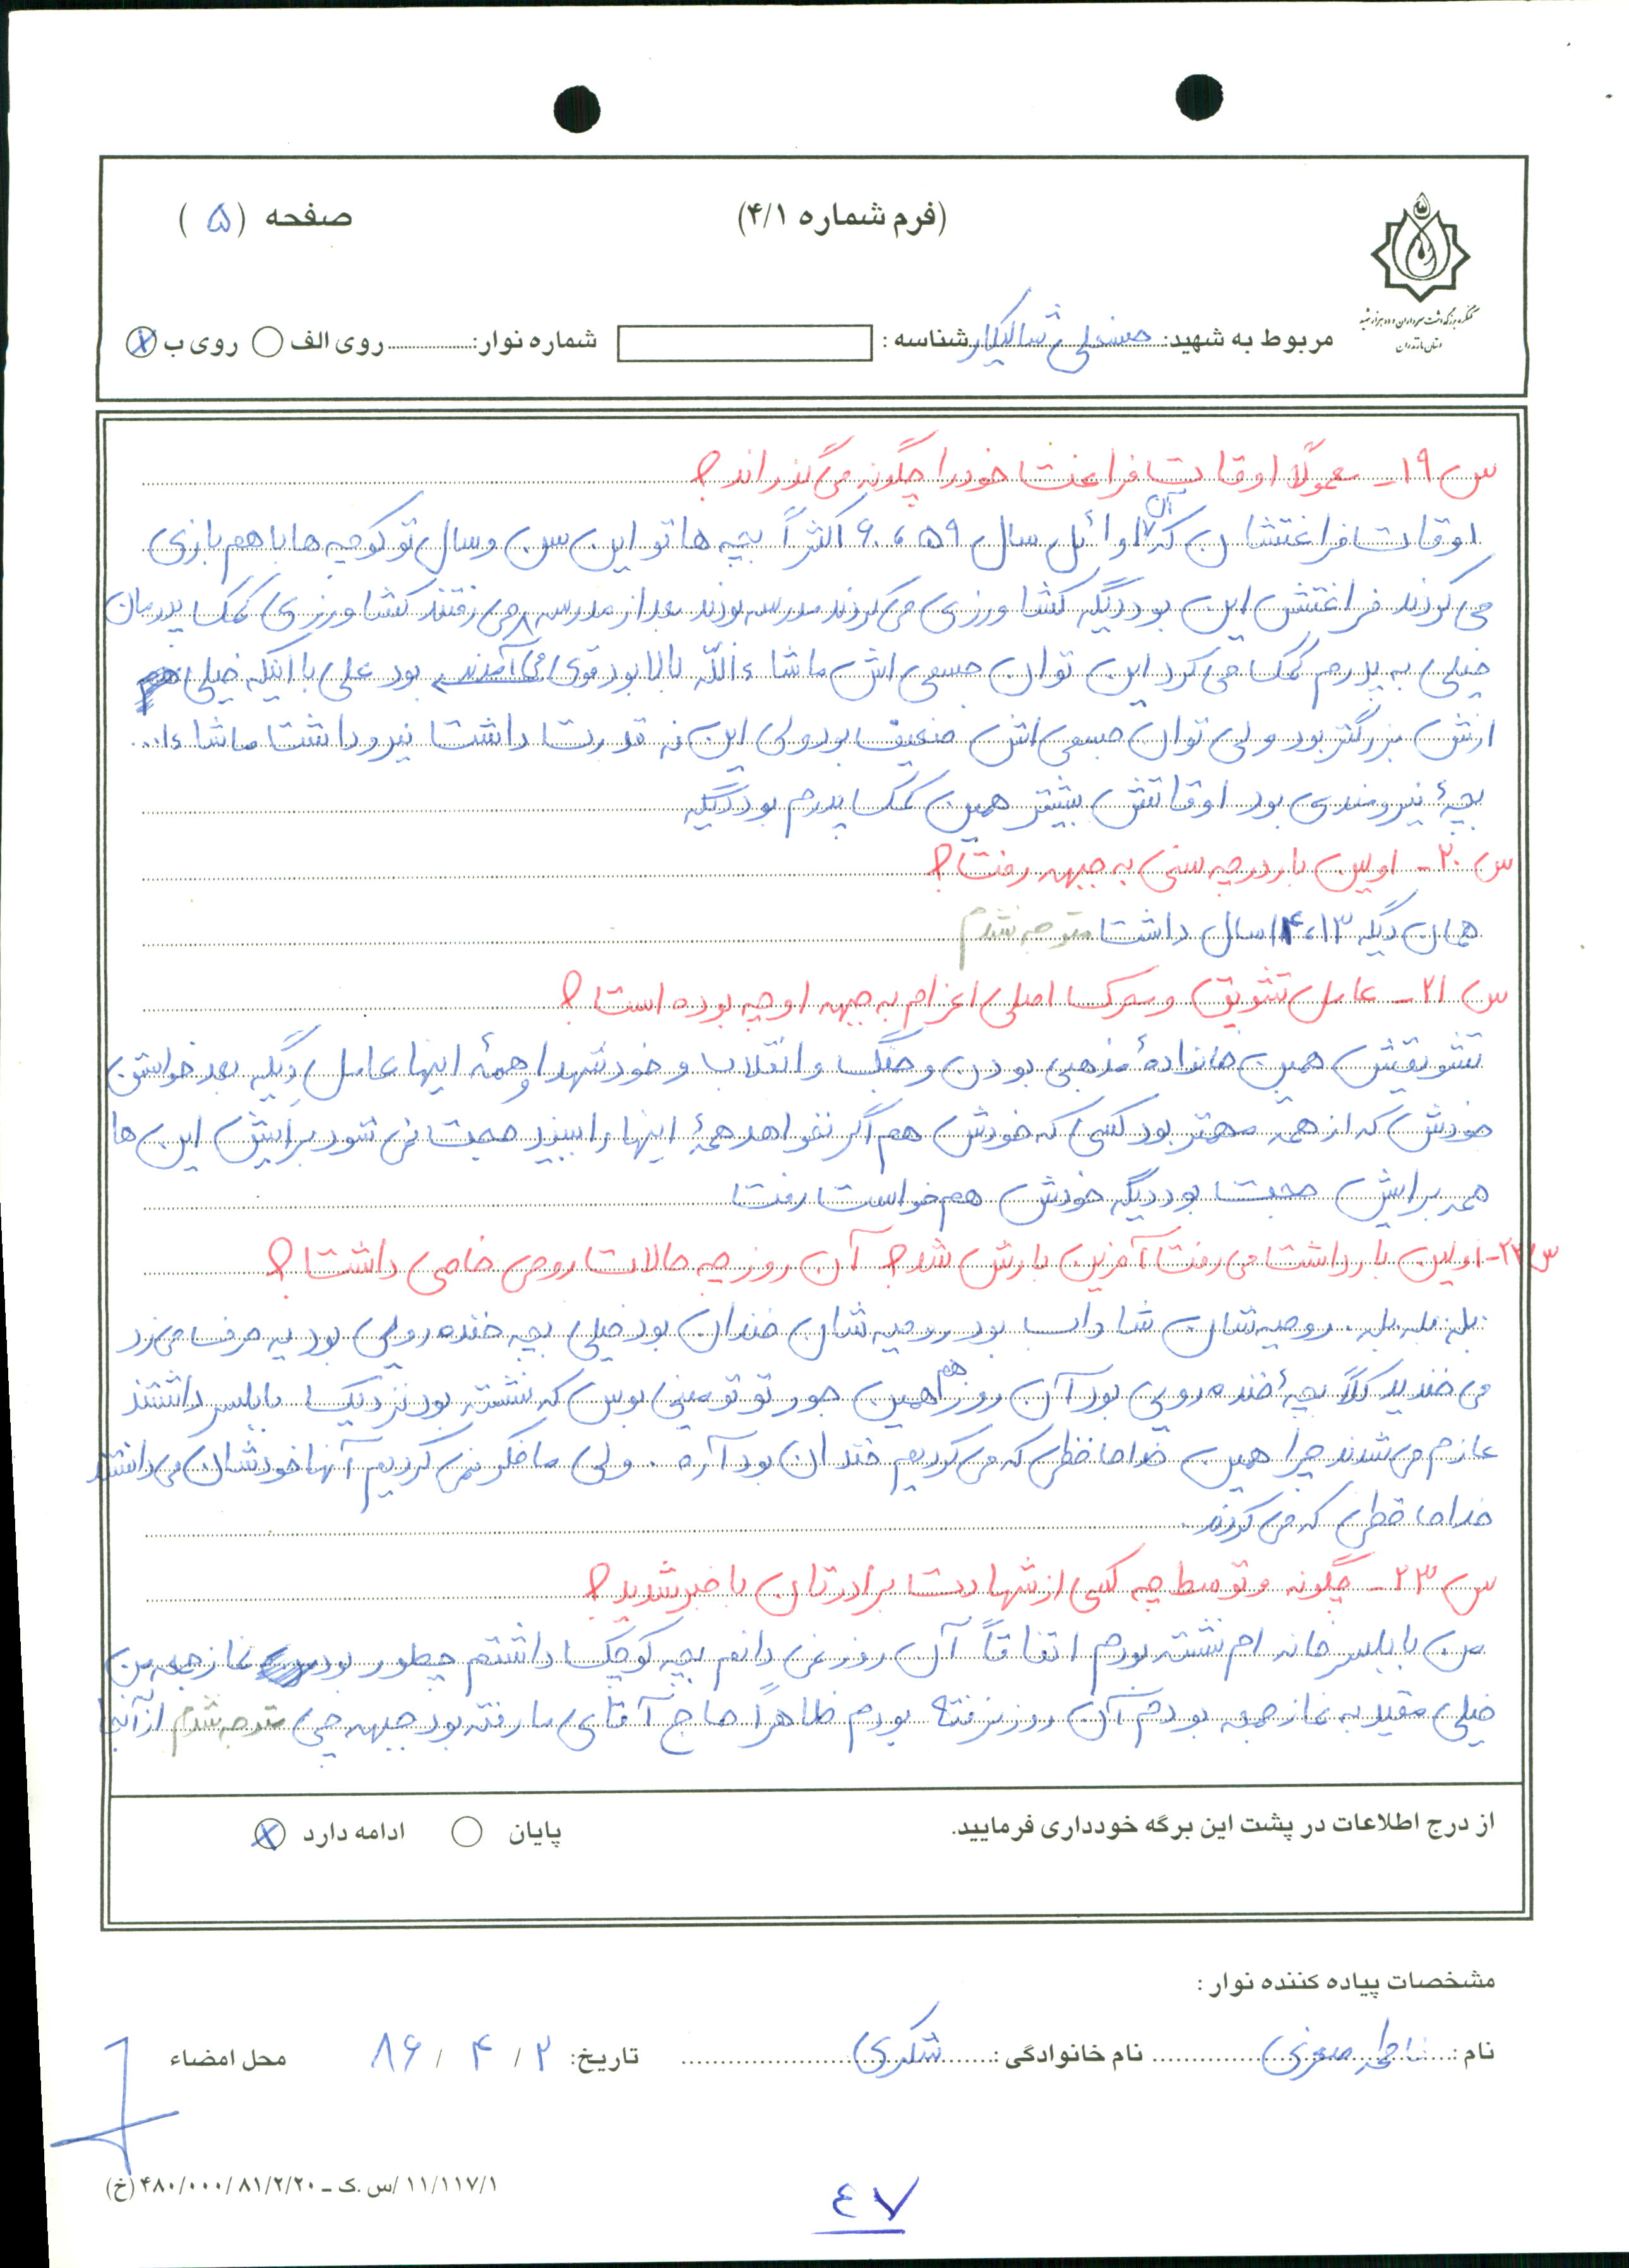 (فرم شماره ۴/۱)
صفحه (۵)
کنگره بزرگداشت سرداران و ده هزار شهید
استان مازندران
مربوط به شهید: حسنعلی شالیکار شناسه: شماره نوار: روی الف روی ب
س ۱۹- معمولاً اوقات فراغت خود را چگونه می گذراند؟
اوقات فراغتشان که آن اوائل سال ۵۹، ۶۰ اکثراً بچه ها تو این سن و سال تو کوچه ها با هم بازی
می کردند فراغتش این بود دیگه کشاورزی می کردند مدرسه بودند بعد از مدرسه می رفتند کشاورزی کمک پدرمان
خیلی به پدرم کمک می کرد این توان جسمی اش ماشاءالله بالا بود قوی می آمدند بود علی با اینکه خیلی
ازش بزرگتر بود ولی توان جسمی اش ضعیف بود ولی این نه قدرت داشت نیرو داشت ماشاءا...
بچهٔ نیرومندی بود اوقاتش بیشتر همین کمک پدرم بود دیگه
س ۲۰- اولین بار در چه سنی به جبهه رفت؟
همان دیگه ۱۳، ۱۴ سال داشت متوجه نشدم
س ۲۱- عامل تشویق و محرک اصلی اعزام به جبهه او چه بوده است؟
تشویقش همین خانوادهٔ مذهبی بودن و جنگ و انقلاب و خود شهدا و همهٔ اینها عامل دیگه بعد خواستن
خودش که از همه مهمتر بود کسی که خودش هم اگر نخواهد همهٔ اینها را ببیند حجت نمی شود برایش این ها
همه برایش حجت بود دیگه خودش هم خواست رفت
س ۲۲- اولین بار داشت می رفت آخرین بارش شد؟ آن روز چه حالات روحی خاصی داشت؟
بله بله بله. روحیه شان شاداب بود روحیه شان خندان بود خیلی بچه خنده رویی بود یه حرف می زد
می خندید کلاً بچهٔ خنده رویی بود آن روز هم همین جور تو تو مینی بوس که نشسته بود نزدیک بابلسر داشتند
عازم می شدند چرا همین خداحافظی که می کردیم خندان بود آره. ولی ما فکر نمی کردیم آنها خودشان می دانستند
خداحافظی که می کردند.
س ۲۳- چگونه و توسط چه کسی از شهادت برادرتان با خبر شدید؟
من بابلسر خانه ام نشسته بودم اتفاقاً آن روز نمی دانم بچه کوچک داشتم چطور بود نماز جمعه من
خیلی مقید به نماز جمعه بودم آن روز نرفته بودم ظاهراً حاج آقای ما رفته بود جبهه چی متوجه نشدم از آنجا
از درج اطلاعات در پشت این برگه خودداری فرمایید.
پایان ادامه دارد
مشخصات پیاده کننده نوار:
نام: فاطمه صغری نام خانوادگی: شکری تاریخ: ۲ / ۴ / ۸۶ محل امضاء
۱۱/۱۱۷/۱ /س.ک - ۸۱/۲/۲۰ /۴۸۰/۰۰۰ (خ)
۴۷